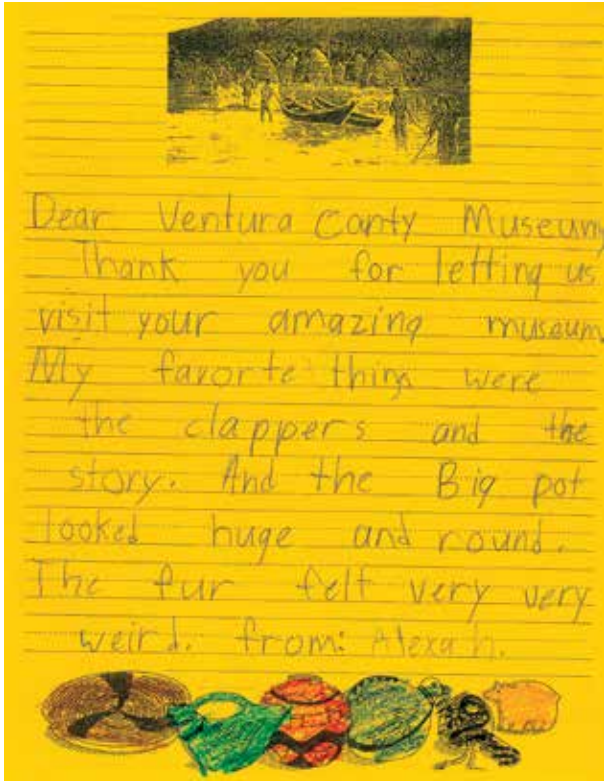 Dear Ventura Conty Museum,
Thank you for letting us
visit your amazing museum.
My favorte things were
the clappers and the
story. And the Big pot
looked huge and round.
The fur felt very very
weird. from: Alexa h.